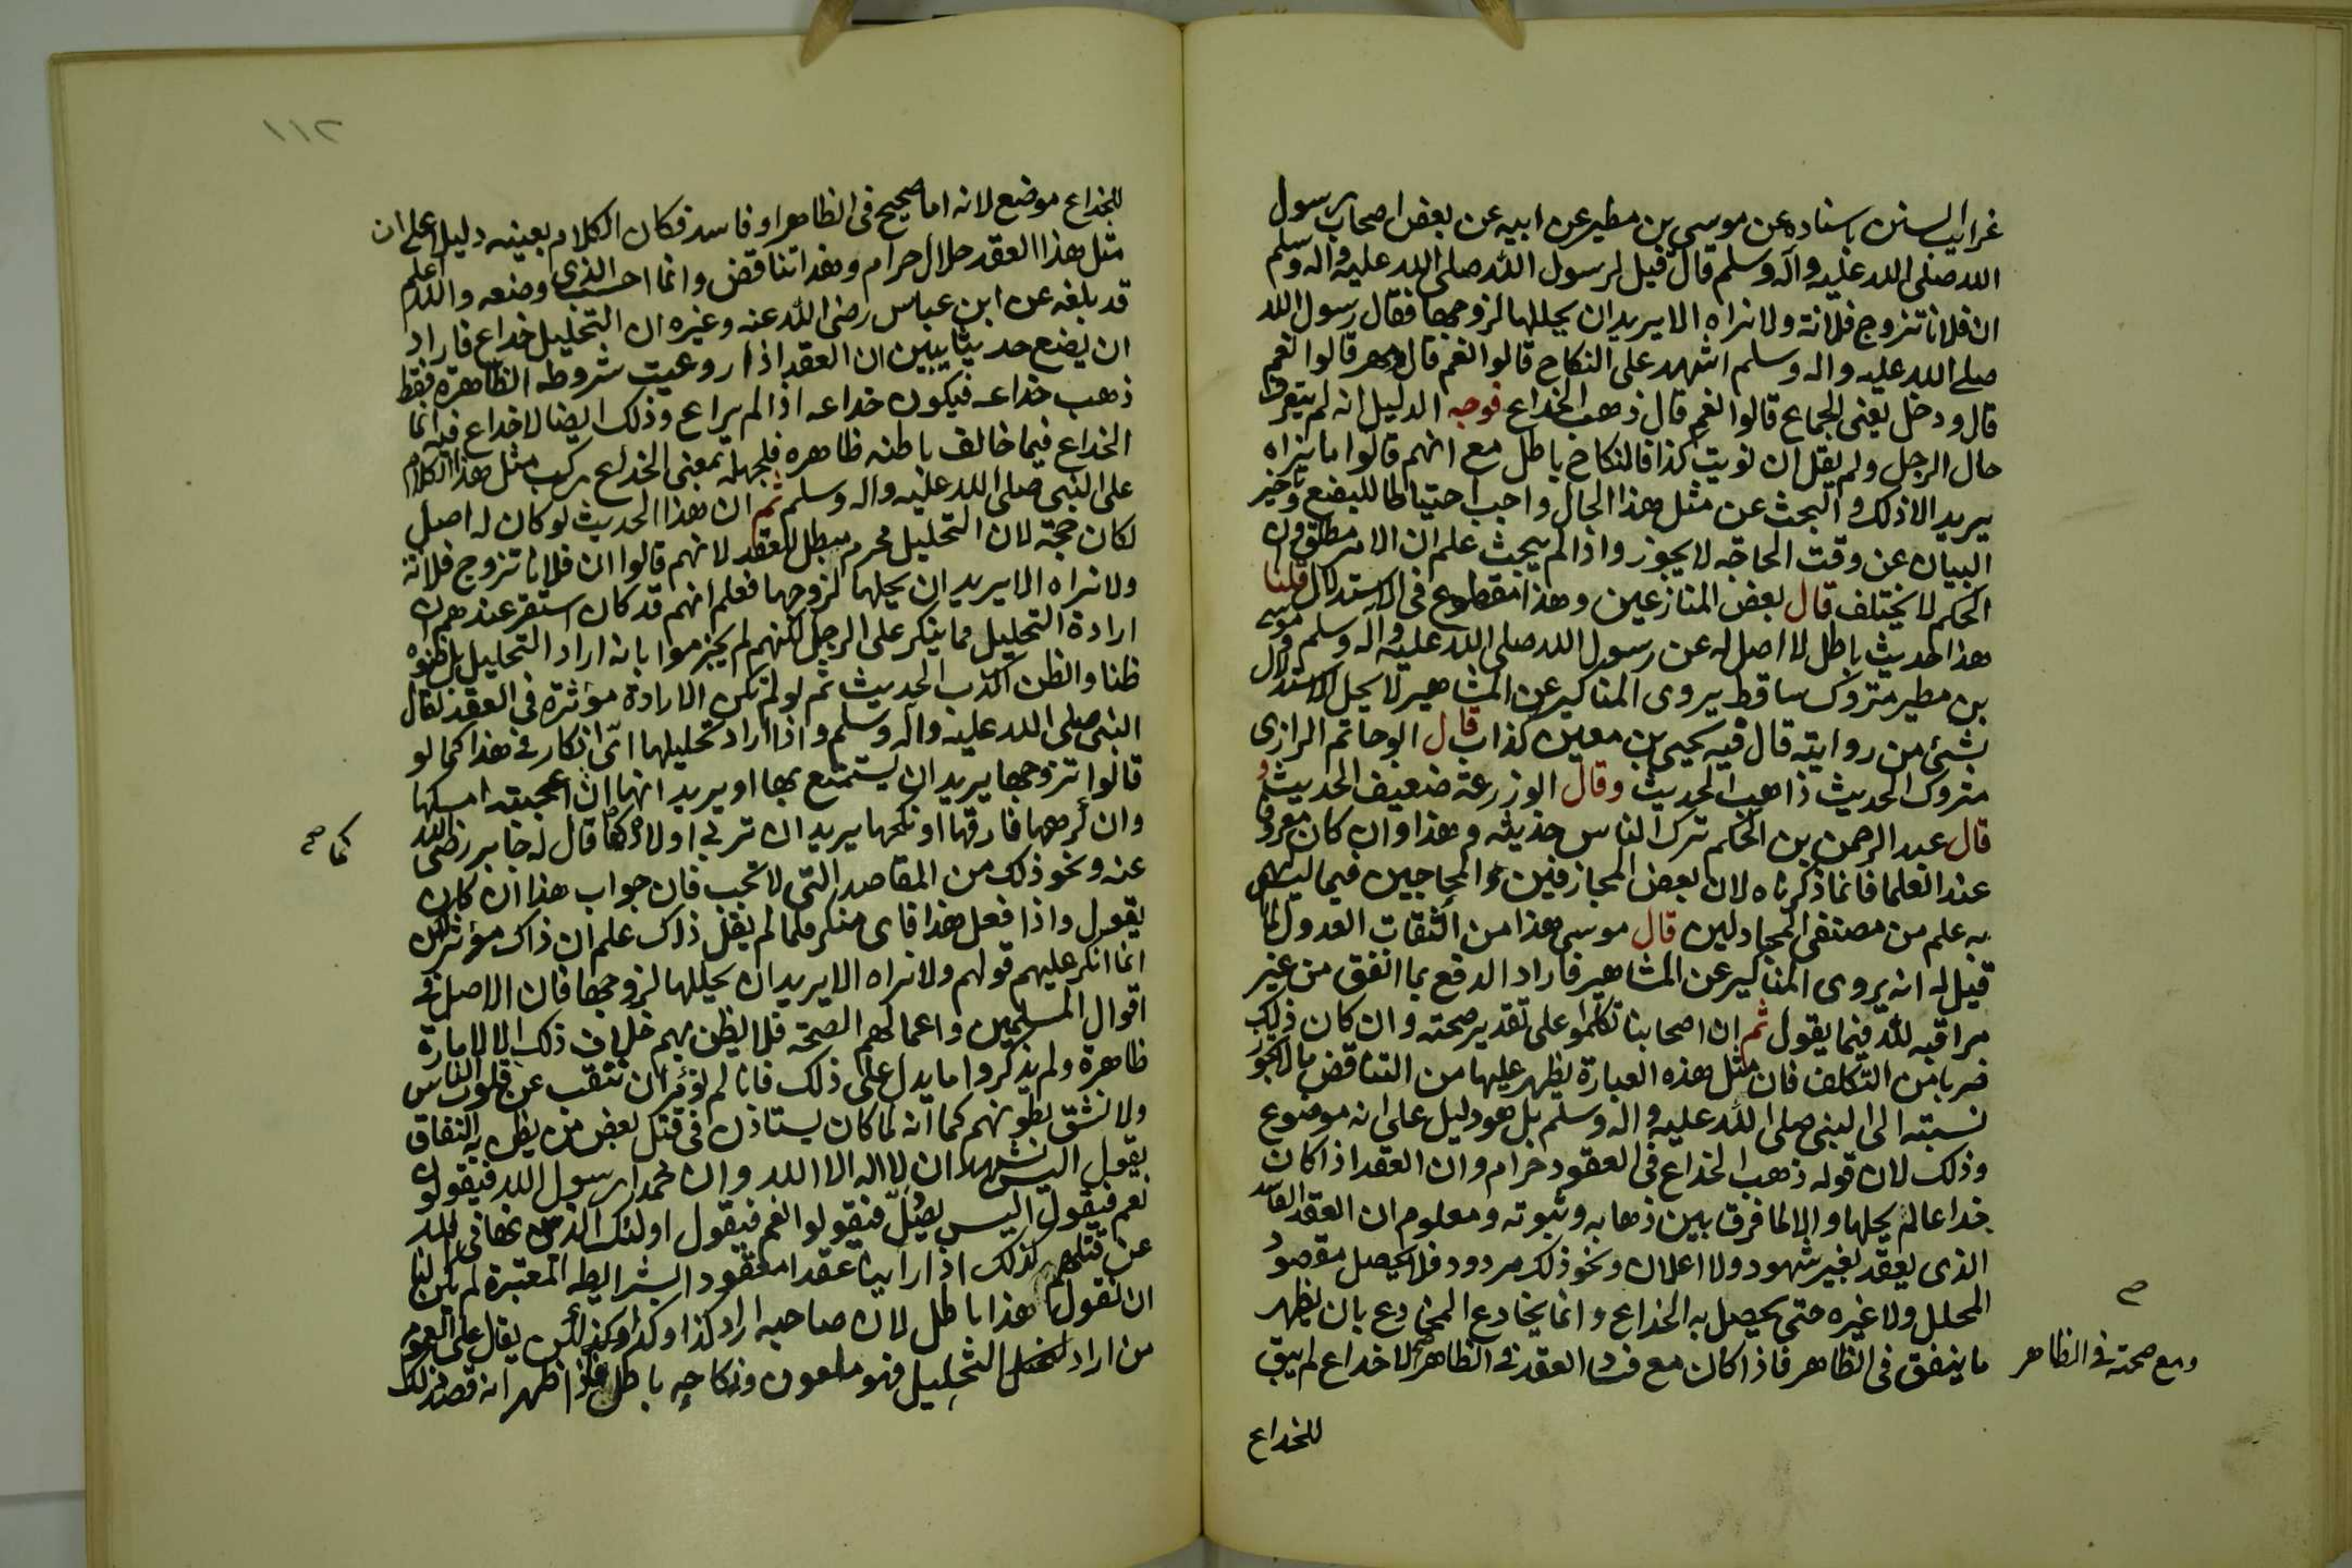 غرايب السنن باسناده عن موسى بن مطير عن ابيه عن بعض اصحاب رسول
الله صلى الله عليه وآله وسلم قال قيل لرسول الله صلى الله عليه واله وسلم
ان فلانا تزوج فلانة ولا نراه الا يريد ان يحللها لزوجها فقال رسول الله
صلى الله عليه واله وسلم اشهد على النكاح قالوا نعم قال ومهر قالوا نعم
قال ودخل يعنى الجماع قالوا نعم قال ذهب الخداع فوجه الدليل انه لم يتعرف
حال الرجل ولم يقل ان نويت كذا فالنكاح باطل مع انهم قالوا ما نراه
يريد الا ذلك والبحث عن مثل هذا الحال واجب احتياطا للبضع وتاخير
البيان عن وقت الحاجه لا يجوز واذا لم يبحث علم ان الامر مطلق وان
الحكم لا يختلف قال بعض المنازعين وهذا مقطوع فى الاستدلال قلنا
هذا الحديث باطل لا اصل له عن رسول الله صلى الله عليه واله وسلم وموسى
بن مطير متروك ساقط يروى المناكير عن المشاهير لا يحل الاستدلال
بشئ من روايته قال فيه يحيى بن معين كذاب قال ابوحاتم الرازى
متروك الحديث ذاهب الحديث وقال ابوزرعة ضعيف الحديث و
قال عبد الرحمن بن الحكم ترك الناس حديثه وهذا وان كان معروفا
عند العلما فانما ذكرناه لان بعض المجازفين والمحاجين فيما ليس لهم
به علم من مصنفى المجادلين قال موسى هذا من الثقات العدول لما
قيل له انه يروى المناكير عن المشاهير فاراد الدفع بما اتفق من غير
مراقبه لله فيما يقول ثم ان اصحابنا تكلموا على تقدير صحته وان كان ذلك
ضربا من التكلف فان مثل هذه العبارة يظهر عليها من التناقض مالا يجوز
نسبته الى النبى صلى الله عليه واله وسلم بل هو دليل على انه موضوع
وذلك لان قوله ذهب الخداع فى العقود حرام وان العقد اذا كان
خداعا لم يحلها والا لما فرق بين ذهابه وثبوته ومعلوم ان العقد الفاسد
الذى يعقد بغير شهود ولا اعلان ونحو ذلك مردود فلا يحصل مقصود
المحلل ولا غيره حتى يحصل به الخداع وانما يخادع المخادع بان يظهر
ما ينفق فى الظاهر فاذا كان مع فساد العقد فى الظاهر لا خداع لم يبق
ومع صحته فى الظاهر
صح
للخداع
١١٢
للخداع موضع لانه اما صحيح فى الظاهر او فاسد فكان الكلام بعينه دليلا على ان
مثل هذا العقد حلال حرام وهذا تناقض وانما احسب الذى وضعه والله اعلم
قد بلغه عن ابن عباس رضى الله عنه وغيره ان التحليل خداع فاراد
ان يضع حديثا يبين ان العقد اذا روعيت شروطه الظاهرة فقط
ذهب خداعه فيكون خداعه اذا لم يراع وذلك ايضا لا خداع فيه انما
الخداع فيما خالف باطنه ظاهره فلجهله بمعنى الخداع ركب مثل هذا الكلام
على النبى صلى الله عليه واله وسلم ثم ان هذا الحديث لو كان له اصل
لكان حجة لان التحليل محرم مبطل للعقد لانهم قالوا ان فلانا تزوج فلانة
ولا نراه الا يريد ان يحلها لزوجها فعلم انهم قد كان استقر عندهم ان
ارادة التحليل مما ينكر على الرجل لكنهم لم يجزموا بانه اراد التحليل بل ظنوه
ظنا والظن اكذب الحديث ثم لو لم تكن الارادة مؤثرة فى العقد لقال
النبى صلى الله عليه واله وسلم واذا اراد تحليلها اىّ انكار فى هذا كما لو
قالوا تزوجها يريد ان يستمتع بها او يريد انها ان اعجبته امسكها
وان كرهها فارقها او نكحها يريد ان تربى اولاده كما قال له جابر رضى الله
عنه ونحو ذلك من المقاصد التى لا تجب فان جواب هذا ان كان
يقول واذا فعل هذا فاى منكر فلما لم يقل ذلك علم ان ذاك مؤثر لكن
انما انكر عليهم قولهم ولا نراه الا يريد ان يحللها لزوجها فان الاصل فى
اقوال المسلمين واعمالهم الصحة فلا يظن بهم خلاف ذلك الا لامارة
ظاهرة ولم يذكروا ما يدل على ذلك فانا لم نؤمر ان ننقب عن قلوب الناس
ولا نشق بطونهم كما انه لما كان يستاذن فى قتل بعض من يظن به النفاق
يقول اليس يشهد ان لا اله الا الله وان محمدا رسول الله فيقولون
نعم فيقول اليس يصلّى فيقولوا نعم فيقول اولئك الذين نهانى الله
عن قتلهم كذلك اذا راينا عقدا معقود الشرايط المعتبرة لم يكن لنا
ان نقول هذا باطل لان صاحبه اراد كذا وكذا وكذا لكن يقال على العموم
من اراد التحليل فهو ملعون ونكاحه باطل فاذا ظهر انه قصد ذلك
كما صح